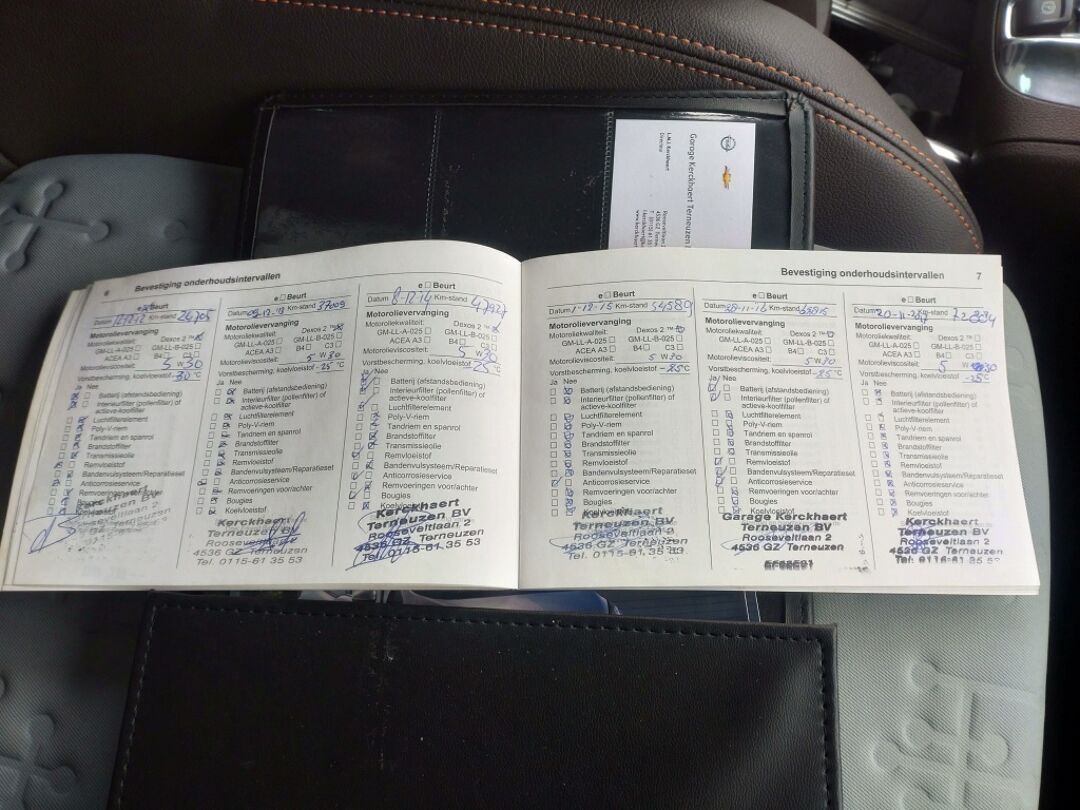 Garage Kerckhaert Terneuzen
L.M.J. Kerckhaert
Directeur
6 Bevestiging onderhoudsintervallen
Beurt
Km-stand 26705
Motorolievervanging
Motoroliekwaliteit:
Dexos 2 ™
GM-LL-A-025 GM-LL-B-025
ACEA A3 B4 C3
Motorolieviscositeit: 5 W 30
Vorstbescherming, koelvloeistof -30 °C
Ja Nee
Batterij (afstandsbediening)
Interieurfilter (pollenfilter) of
actieve-koolfilter
Luchtfilterelement
Poly-V-riem
Tandriem en spanrol
Brandstoffilter
Transmissieolie
Remvloeistof
Bandenvulsysteem/Reparatieset
Anticorrosieservice
Remvoeringen voor/achter
Bougies
e Beurt
Datum 09-12-13 Km-stand 37009
Motorolievervanging
Motoroliekwaliteit: Dexos 2 ™
GM-LL-A-025 GM-LL-B-025
ACEA A3 B4 C3
Motorolieviscositeit: 5 W 30
Vorstbescherming, koelvloeistof -25 °C
Ja Nee
Batterij (afstandsbediening)
Interieurfilter (pollenfilter) of
actieve-koolfilter
Luchtfilterelement
Poly-V-riem
Tandriem en spanrol
Brandstoffilter
Transmissieolie
Remvloeistof
Bandenvulsysteem/Reparatieset
Anticorrosieservice
Remvoeringen voor/achter
Bougies
Koelvloeistof
Kerckhaert
Terneuzen BV
Rooseveltlaan 2
4536 GZ Terneuzen
Tel. 0115-61 35 53
e Beurt
Datum 8-12-14 Km-stand 47927
Motorolievervanging
Motoroliekwaliteit: Dexos 2 ™
GM-LL-A-025 GM-LL-B-025
ACEA A3 B4 C3
Motorolieviscositeit: 5 W 30
Vorstbescherming, koelvloeistof -25 °C
Ja Nee
Batterij (afstandsbediening)
Interieurfilter (pollenfilter) of
actieve-koolfilter
Luchtfilterelement
Poly-V-riem
Tandriem en spanrol
Brandstoffilter
Transmissieolie
Remvloeistof
Bandenvulsysteem/Reparatieset
Anticorrosieservice
Remvoeringen voor/achter
Bougies
Kerckhaert
Terneuzen BV
Rooseveltlaan 2
4536 GZ Terneuzen
Tel. 0115-61 35 53
Bevestiging onderhoudsintervallen 7
e Beurt
Datum 1-12-15 Km-stand 54589
Motorolievervanging
Motoroliekwaliteit: Dexos 2 ™
GM-LL-A-025 GM-LL-B-025
ACEA A3 B4 C3
Motorolieviscositeit: 5 W 30
Vorstbescherming, koelvloeistof -25 °C
Ja Nee
Batterij (afstandsbediening)
Interieurfilter (pollenfilter) of
actieve-koolfilter
Luchtfilterelement
Poly-V-riem
Tandriem en spanrol
Brandstoffilter
Transmissieolie
Remvloeistof
Bandenvulsysteem/Reparatieset
Anticorrosieservice
Remvoeringen voor/achter
Bougies
Koelvloeistof
Kerckhaert
Terneuzen BV
Rooseveltlaan 2
4536 GZ Terneuzen
Tel. 0115-61 35 53
e Beurt
Datum 28-11-16 Km-stand
Motorolievervanging
Motoroliekwaliteit: Dexos 2 ™
GM-LL-A-025 GM-LL-B-025
ACEA A3 B4 C3
Motorolieviscositeit: 5 W 30
Vorstbescherming, koelvloeistof -25 °C
Ja Nee
Batterij (afstandsbediening)
Interieurfilter (pollenfilter) of
actieve-koolfilter
Luchtfilterelement
Poly-V-riem
Tandriem en spanrol
Brandstoffilter
Transmissieolie
Remvloeistof
Bandenvulsysteem/Reparatieset
Anticorrosieservice
Remvoeringen voor/achter
Bougies
Koelvloeistof
Garage Kerckhaert
Terneuzen BV
Rooseveltlaan 2
4536 GZ Terneuzen
e Beurt
Datum Km-stand
Motorolievervanging
Motoroliekwaliteit: Dexos 2 ™
GM-LL-A-025 GM-LL-B-025
ACEA A3 B4 C3
Motorolieviscositeit: 5 W 30
Vorstbescherming, koelvloeistof -25 °C
Ja Nee
Batterij (afstandsbediening)
Interieurfilter (pollenfilter) of
actieve-koolfilter
Luchtfilterelement
Poly-V-riem
Tandriem en spanrol
Brandstoffilter
Transmissieolie
Remvloeistof
Bandenvulsysteem/Reparatieset
Anticorrosieservice
Remvoeringen voor/achter
Bougies
Koelvloeistof
Kerckhaert
Terneuzen BV
Rooseveltlaan 2
4536 GZ Terneuzen